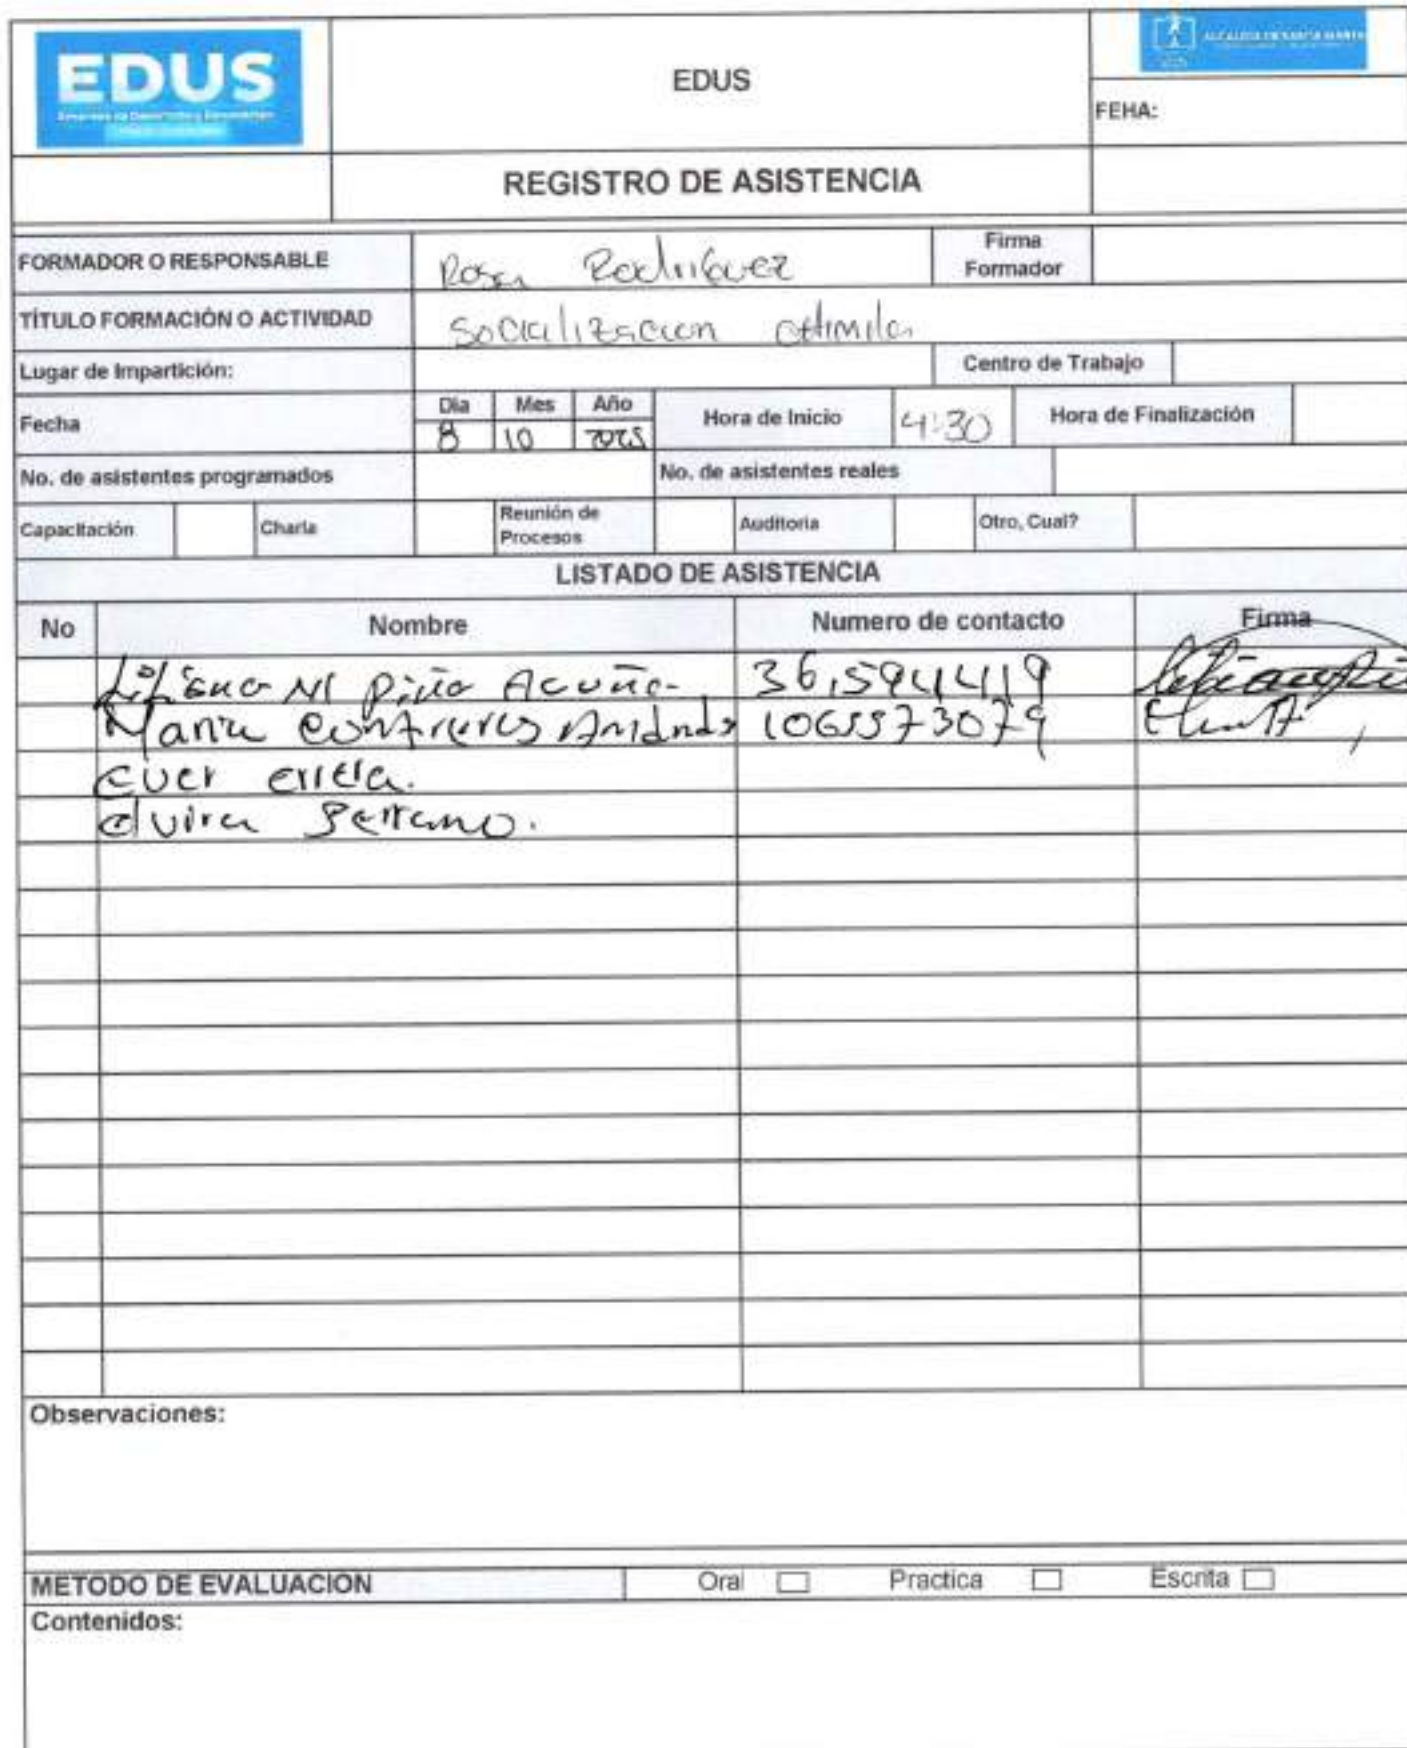 EDUS
EDUS
ALCALDIA DE SANTA MARTA
FEHA:
REGISTRO DE ASISTENCIA
FORMADOR O RESPONSABLE Rosa Rodriguez Firma Formador
TÍTULO FORMACIÓN O ACTIVIDAD Socializacion
Lugar de Impartición: Centro de Trabajo
Fecha Dia Mes Año Hora de Inicio 4:30 Hora de Finalización
8 10 2025
No. de asistentes programados No. de asistentes reales
Capacitación Charla Reunión de Procesos Auditoria Otro, Cual?
LISTADO DE ASISTENCIA
No Nombre Numero de contacto Firma
Liliana M Piña Acuña 36,594419
Maria Contreras 1065573079
Elvira Serrano.
Observaciones:
METODO DE EVALUACION Oral Practica Escrita
Contenidos: